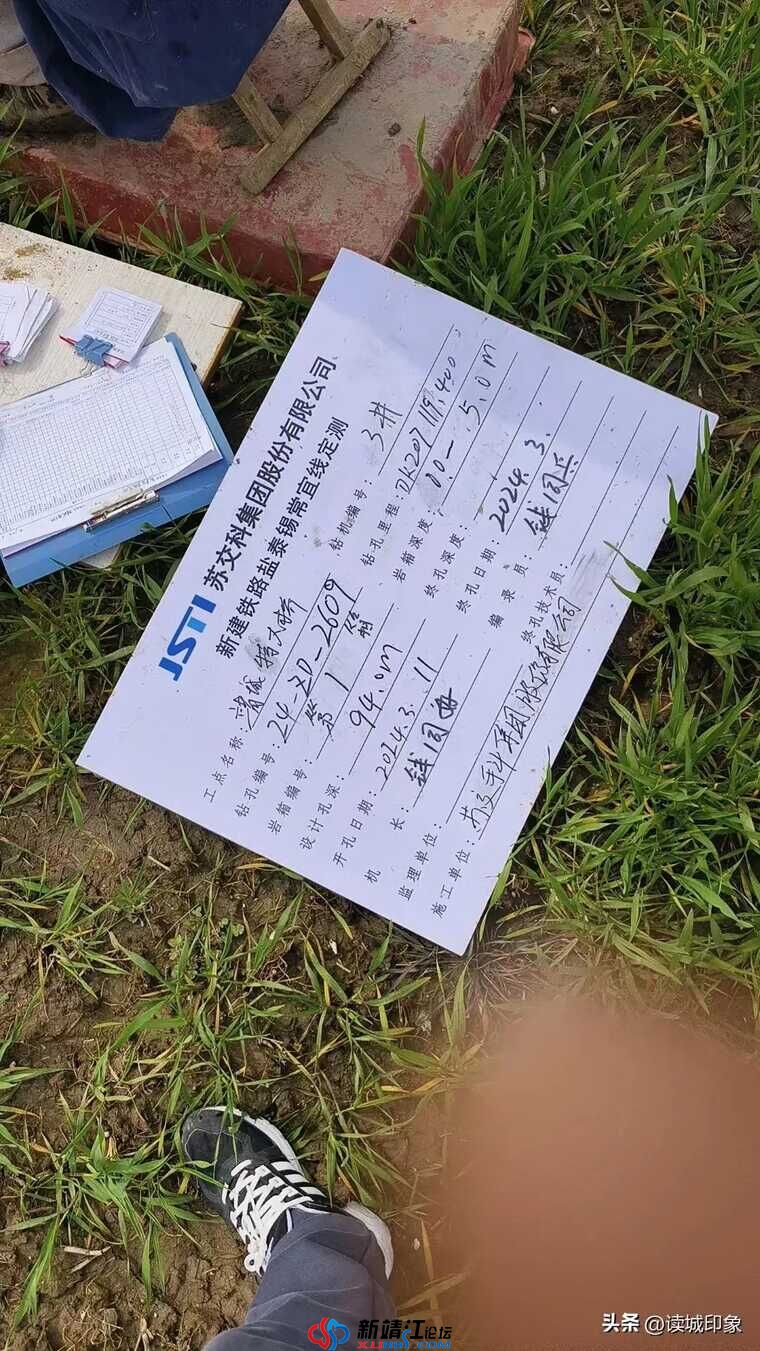 JSTI 苏交科集团股份有限公司
新建铁路盐泰锡常宜线定测
工点名称: 特大桥
钻机编号: 3井
钻孔编号: 24-ZD-2609
钻孔里程: DK207+119.400
岩箱编号: 第 1 箱
岩箱深度 00-5.0m
设计孔深: 94.0m
终孔深度:
开孔日期: 2024.3.11
终孔日期: 2024.3.
机 长: 钱同
编录员: 钱同兵
监理单位:
终孔技术员:
施工单位: 苏交科集团股份有限公司
头条 @读城印象
新靖江论坛